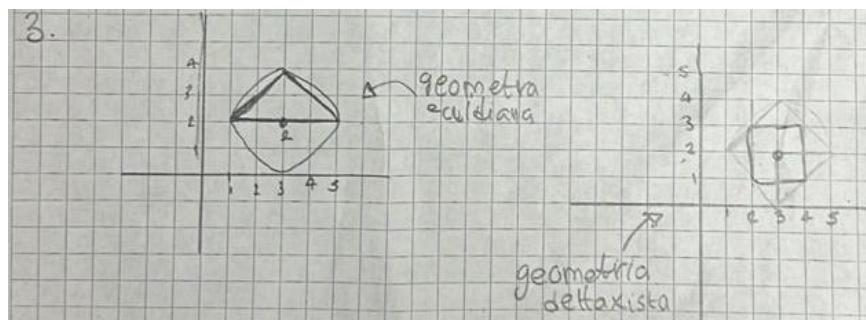 3.
4
3
2
1
2
1 2 3 4 5
geometra
eculdiana
5
4
3
2
1
1 2 3 4 5
geometria
deltaxista